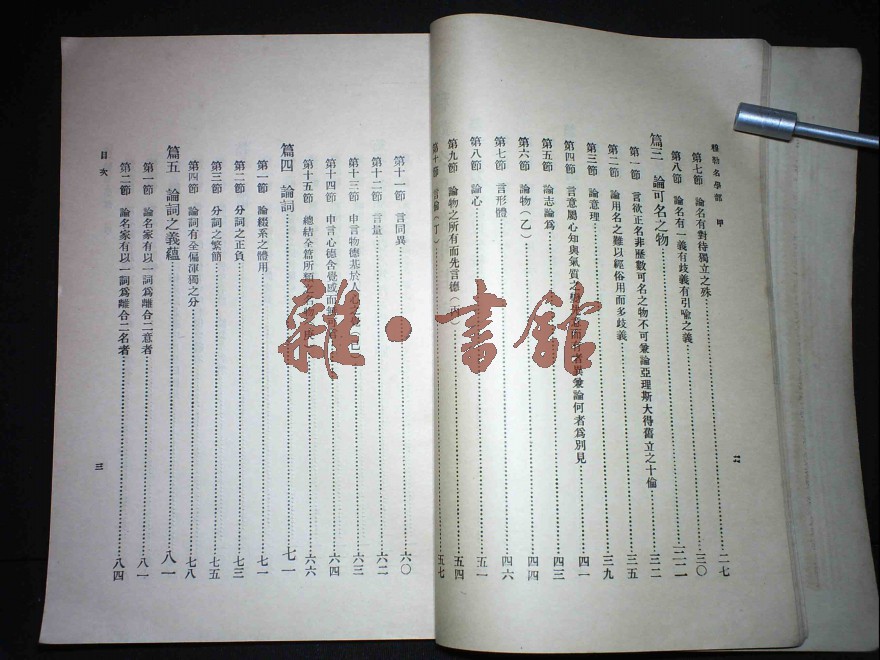 穆勒名學部 甲
第七節 論名有對待獨立之殊 二七
第八節 論名有一義有歧義有引喻之義 三〇
篇三 論可名之物 三二
第一節 言欲正名非歷數可名之物不可兼論亞理斯大得舊立之十倫 三二
第二節 論用名之難以經俗用而多歧義 三五
第三節 論意理 三九
第四節 言意屬心知與氣質之 而 者異兼論何者爲別見 四一
第五節 論志論爲 四三
第六節 論物(乙) 四四
第七節 言形體 四六
第八節 論心 五一
第九節 論物之所有而先言德(丙) 五四
第十節 言倫(丁) 五七
二
第十一節 言同異 六〇
第十二節 言量 六二
第十三節 申言物德基於人心之 六三
第十四節 申言心德舍覺感而無 六四
第十五節 總結全篇所類之 六六
篇四 論詞 七一
第一節 論綴系之體用 七一
第二節 分詞之正負 七三
第三節 分詞之繁簡 七五
第四節 論詞有全偏渾獨之分 七八
篇五 論詞之義蘊 八一
第一節 論名家有以一詞爲離合二意者 八一
第二節 論名家有以一詞爲離合二名者 八四
目次
三
雜·書館